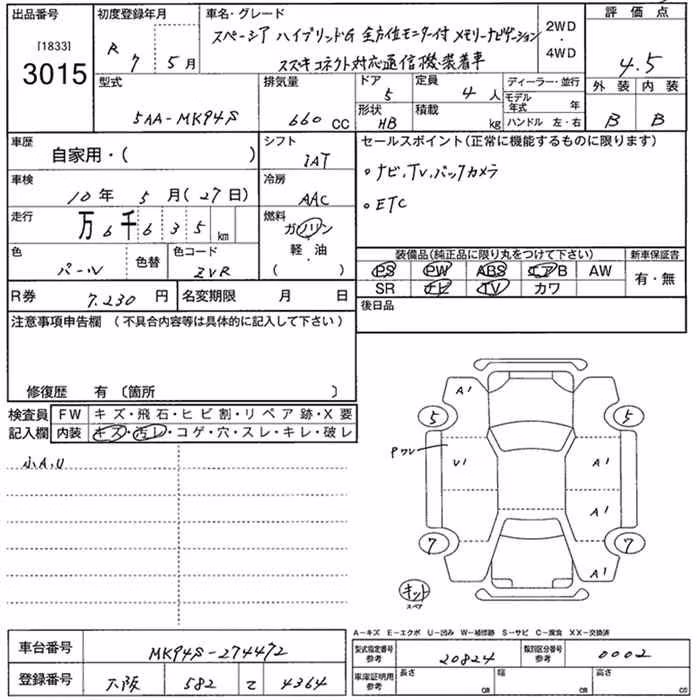 出品番号
[1833]
3015
初度登録年月
R 7 5月
車名・グレード
スペーシア ハイブリッドG 全方位モニター付 メモリーナビゲーション
スズキコネクト対応通信機装着車
2WD
・
4WD
評価点
4.5
型式
5AA-MK94S
排気量
660 CC
ドア
5
定員
4人
形状
HB
積載
kg
ディーラー・並行
モデル年式 年
ハンドル 左・右
外装 内装
B B
車歴
自家用・( )
シフト
IAT
セールスポイント(正常に機能するものに限ります)
・ナビ、TV、バックカメラ
・ETC
車検
10年 5月(27日)
冷房
AAC
走行
万6千635km
燃料
ガソリン
軽・油
( )
色
パール
色替
色コード
ZVR
装備品(純正品に限り丸をつけて下さい)
PS PW ABS エアB AW
SR ナビ TV カワ
新車保証書
有・無
R券 7.230円
名変期限 月 日
後日品
注意事項申告欄(不具合内容等は具体的に記入して下さい)
修復歴 有〔箇所 〕
検査員記入欄
FW キズ・飛石・ヒビ割・リペア跡・X要
内装 キズ・汚レ・コゲ・穴・スレ・キレ・破レ
小A.U
A1
5 5
Pワレ
U1 A1
A1
7 7
A1
キット
スペア
A-キズ E-エクボ U-凹み W-補修跡 S-サビ C-腐食 XX-交換済
車台番号 MK94S-274472
登録番号 大阪 582 て 4364
型式指定番号
参考
20824
類別区分番号
参考
0002
車庫証明用
参考
長さ cm 幅 cm 高さ cm